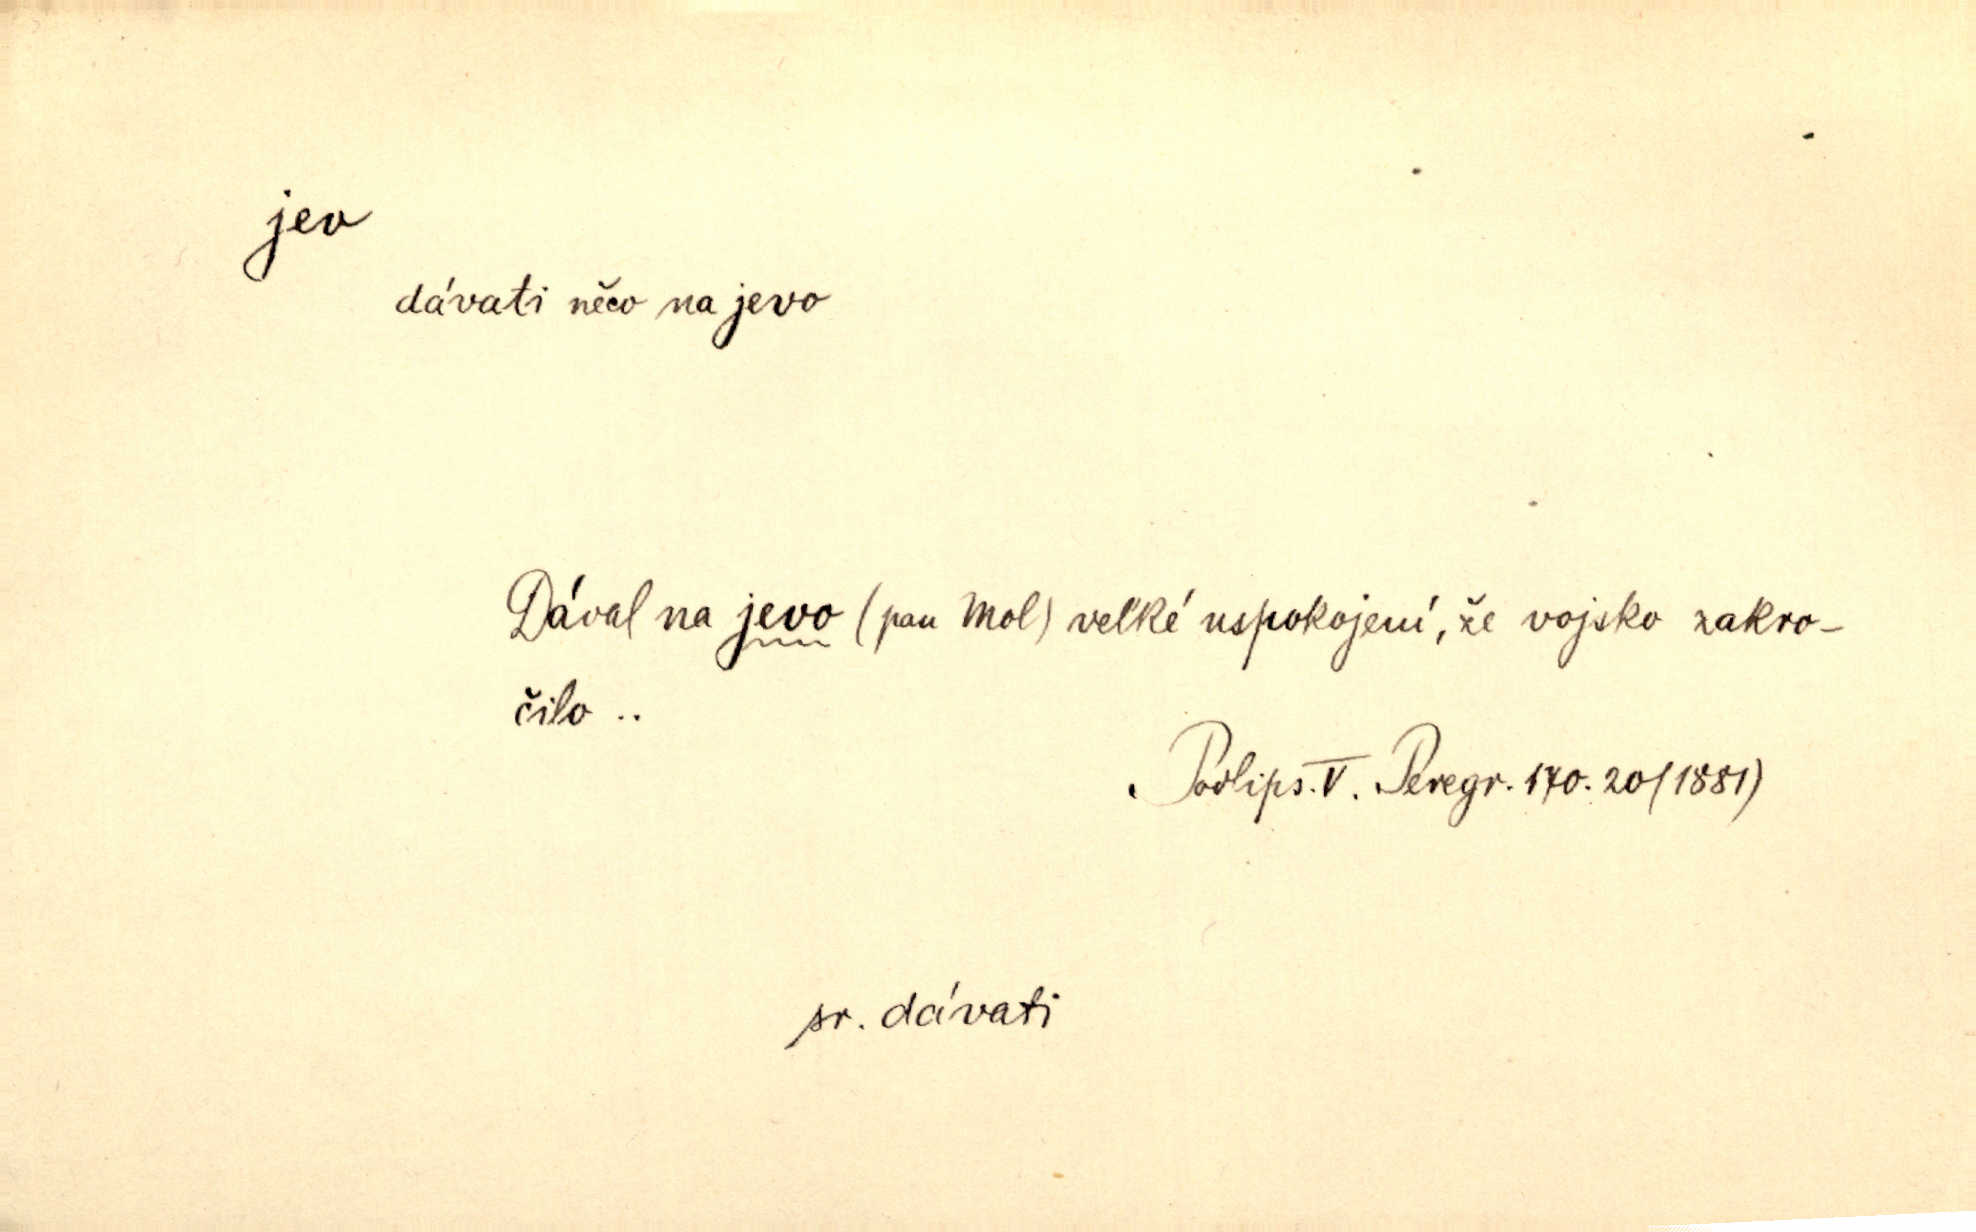 jev
dávati něco na jevo
Dával na jevo (pan Mol) veľké uspokojení, že vojsko zakro-
čilo ..
Podlips. V. Peregr. 170. 20 (1881)
sr. dávati